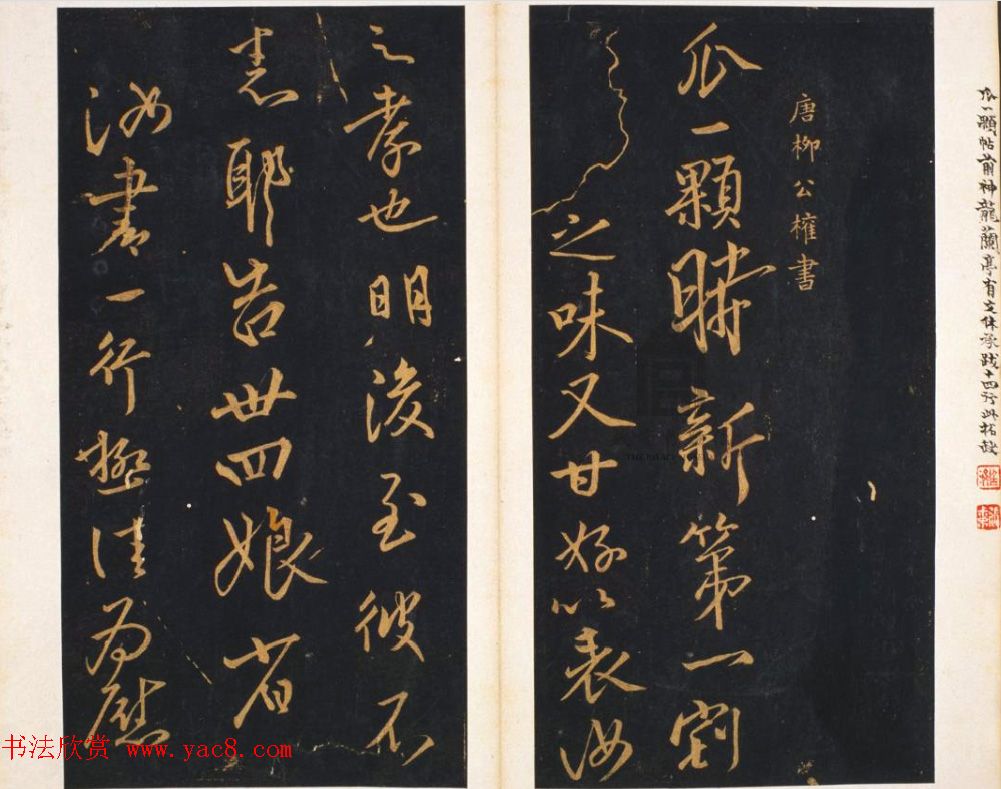 瓜一顆帖前神龍蘭亭有文休承跋十四行此拓缺
唐柳公權書
瓜一顆時新第一割
之味又甘好以表汝
之孝也明後至彼不
恙耶告卅四娘省
汝書一行極佳為慰
书法欣赏 www.yac8.com